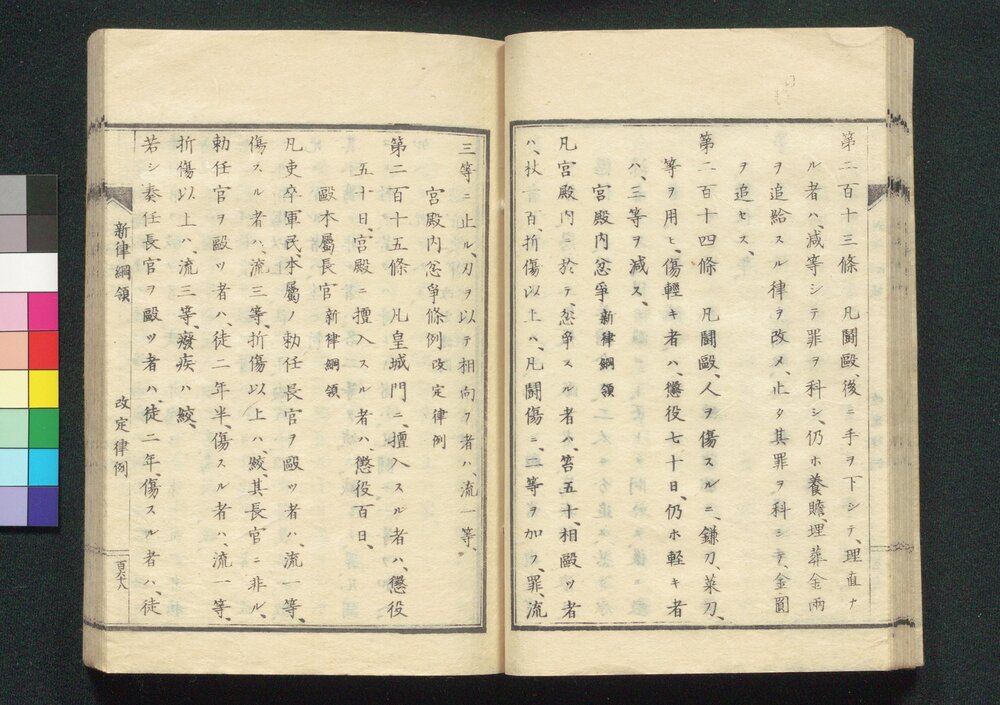 第二百十三條　凡鬪毆後ニ手ヲ下シテ、理直ナ
ル者ハ、減等シテ罪ヲ科シ、仍ホ養贍、埋葬金兩
ヲ追給スル律ヲ改メ、止タ其罪ヲ科シテ、金圓
ヲ追セス、
第二百十四條　凡鬪毆、人ヲ傷スルニ、鎌刀、菜刀、
等ヲ用ヒ、傷輕キ者ハ、懲役七十日、仍ホ輕キ者
ハ、三等ヲ減ス、
宮殿内忿爭新律綱領
凡宮殿内ニ於テ、忿爭スル者ハ、笞五十、相毆ツ者
ハ、杖一百、折傷以上ハ、凡鬪傷ニ、二等ヲ加フ、罪、流
三等ニ止ル、刃ヲ以テ相向フ者ハ、流一等、
宮殿内忿爭條例改定律例
第二百十五條　凡皇城門ニ、擅入スル者ハ、懲役
五十日、宮殿ニ擅入スル者ハ、懲役百日、
毆本屬長官新律綱領
凡吏卒軍民、本屬ノ勅任長官ヲ毆ツ者ハ、流一等、
傷スル者ハ、流三等、折傷以上ハ、絞、其長官ニ非ル、
勅任官ヲ毆ツ者ハ、徒二年半、傷スル者ハ、流一等、
折傷以上ハ、流三等、癈疾ハ絞、
若シ奏任長官ヲ毆ツ者ハ、徒二年、傷スル者ハ、徒
新律綱領　改定律例
百六十八